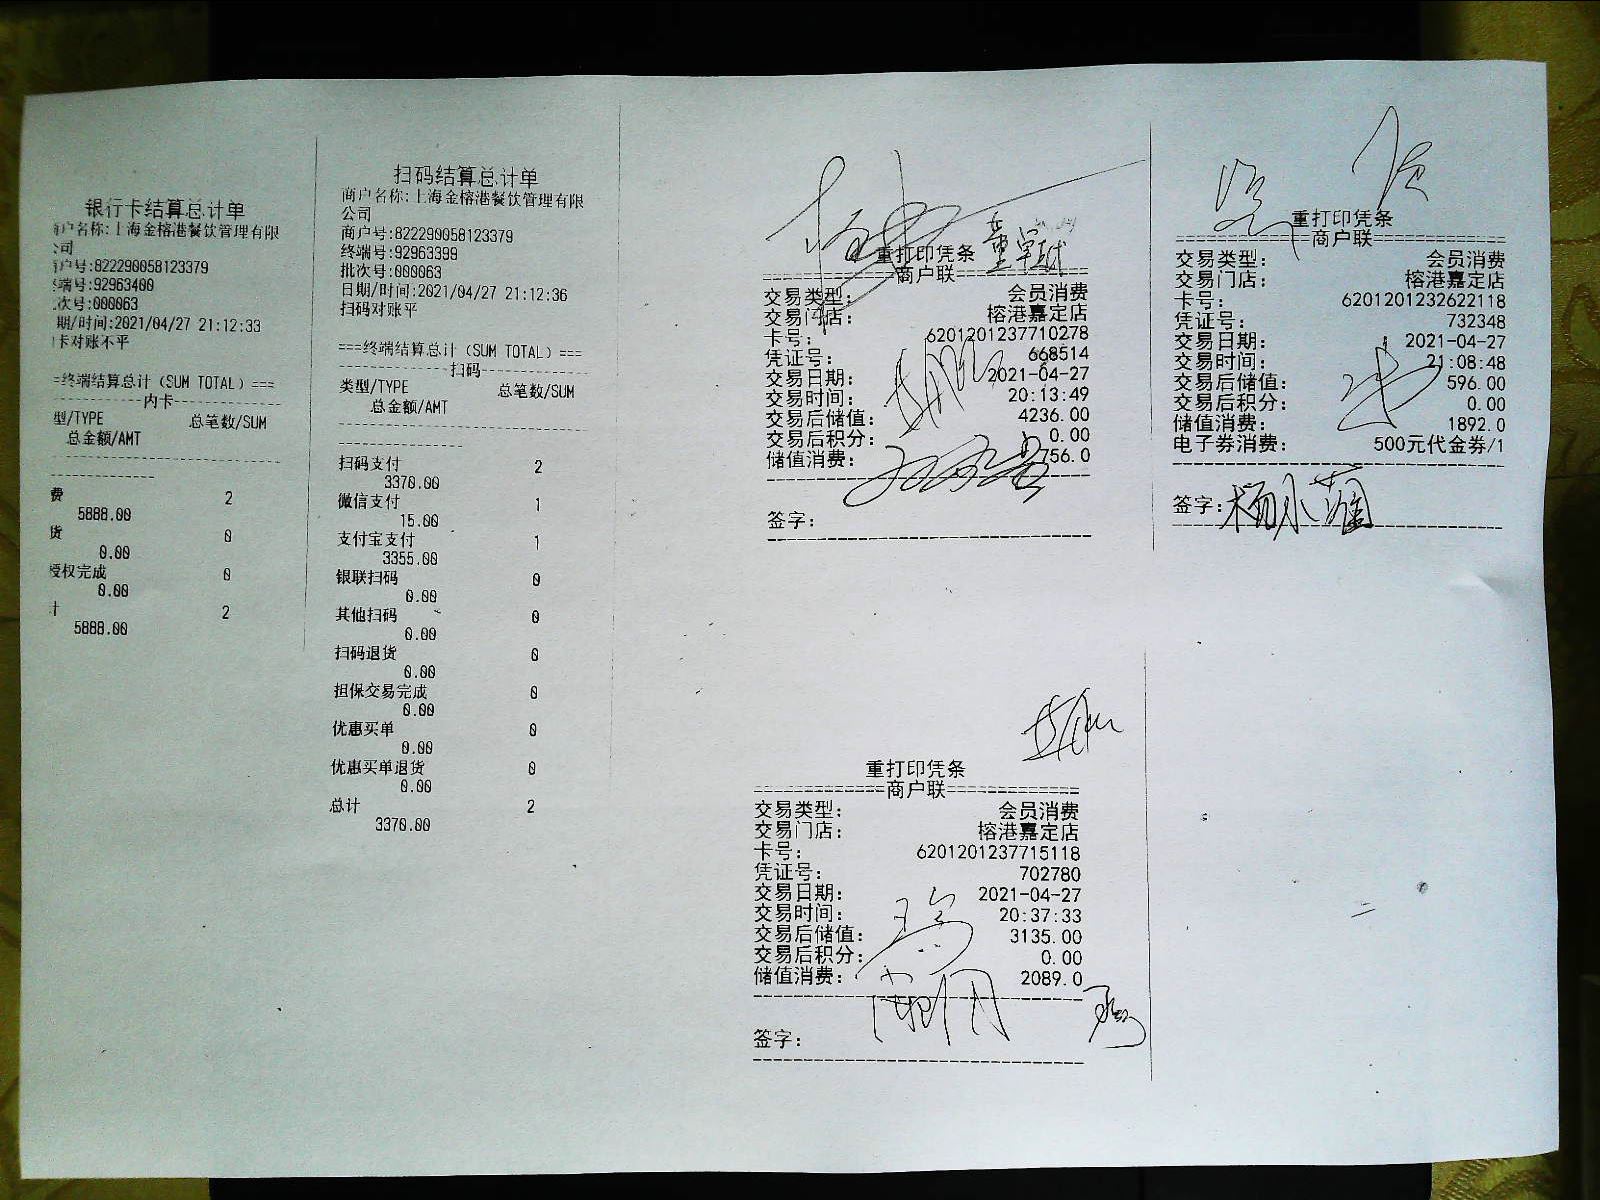 银行卡结算总计单
户名称:上海金榕港餐饮管理有限
公司
户号:822290058123379
端号:92963400
次号:000063
期/时间:2021/04/27 21:12:33
卡对账不平
=终端结算总计(SUM TOTAL)===
内卡
型/TYPE 总笔数/SUM
总金额/AMT
费 2
5888.00
货 0
0.00
授权完成 0
0.00
计 2
5888.00
扫码结算总计单
商户名称:上海金榕港餐饮管理有限
公司
商户号:822290058123379
终端号:92963399
批次号:000063
日期/时间:2021/04/27 21:12:36
扫码对账平
===终端结算总计(SUM TOTAL)===
扫码
类型/TYPE 总笔数/SUM
总金额/AMT
扫码支付 2
3370.00
微信支付 1
15.00
支付宝支付 1
3355.00
银联扫码 0
0.00
其他扫码 0
0.00
扫码退货 0
0.00
担保交易完成 0
0.00
优惠买单 0
0.00
优惠买单退货 0
0.00
总计 2
3370.00
重打印凭条
商户联
交易类型: 会员消费
交易门店: 榕港嘉定店
卡号: 6201201237710278
凭证号: 668514
交易日期: 2021-04-27
交易时间: 20:13:49
交易后储值: 4236.00
交易后积分: 0.00
储值消费: 756.0
签字:
重打印凭条
商户联
交易类型: 会员消费
交易门店: 榕港嘉定店
卡号: 6201201232622118
凭证号: 732348
交易日期: 2021-04-27
交易时间: 21:08:48
交易后储值: 596.00
交易后积分: 0.00
储值消费: 1892.0
电子券消费: 500元代金券/1
签字:
重打印凭条
商户联
交易类型: 会员消费
交易门店: 榕港嘉定店
卡号: 6201201237715118
凭证号: 702780
交易日期: 2021-04-27
交易时间: 20:37:33
交易后储值: 3135.00
交易后积分: 0.00
储值消费: 2089.0
签字: